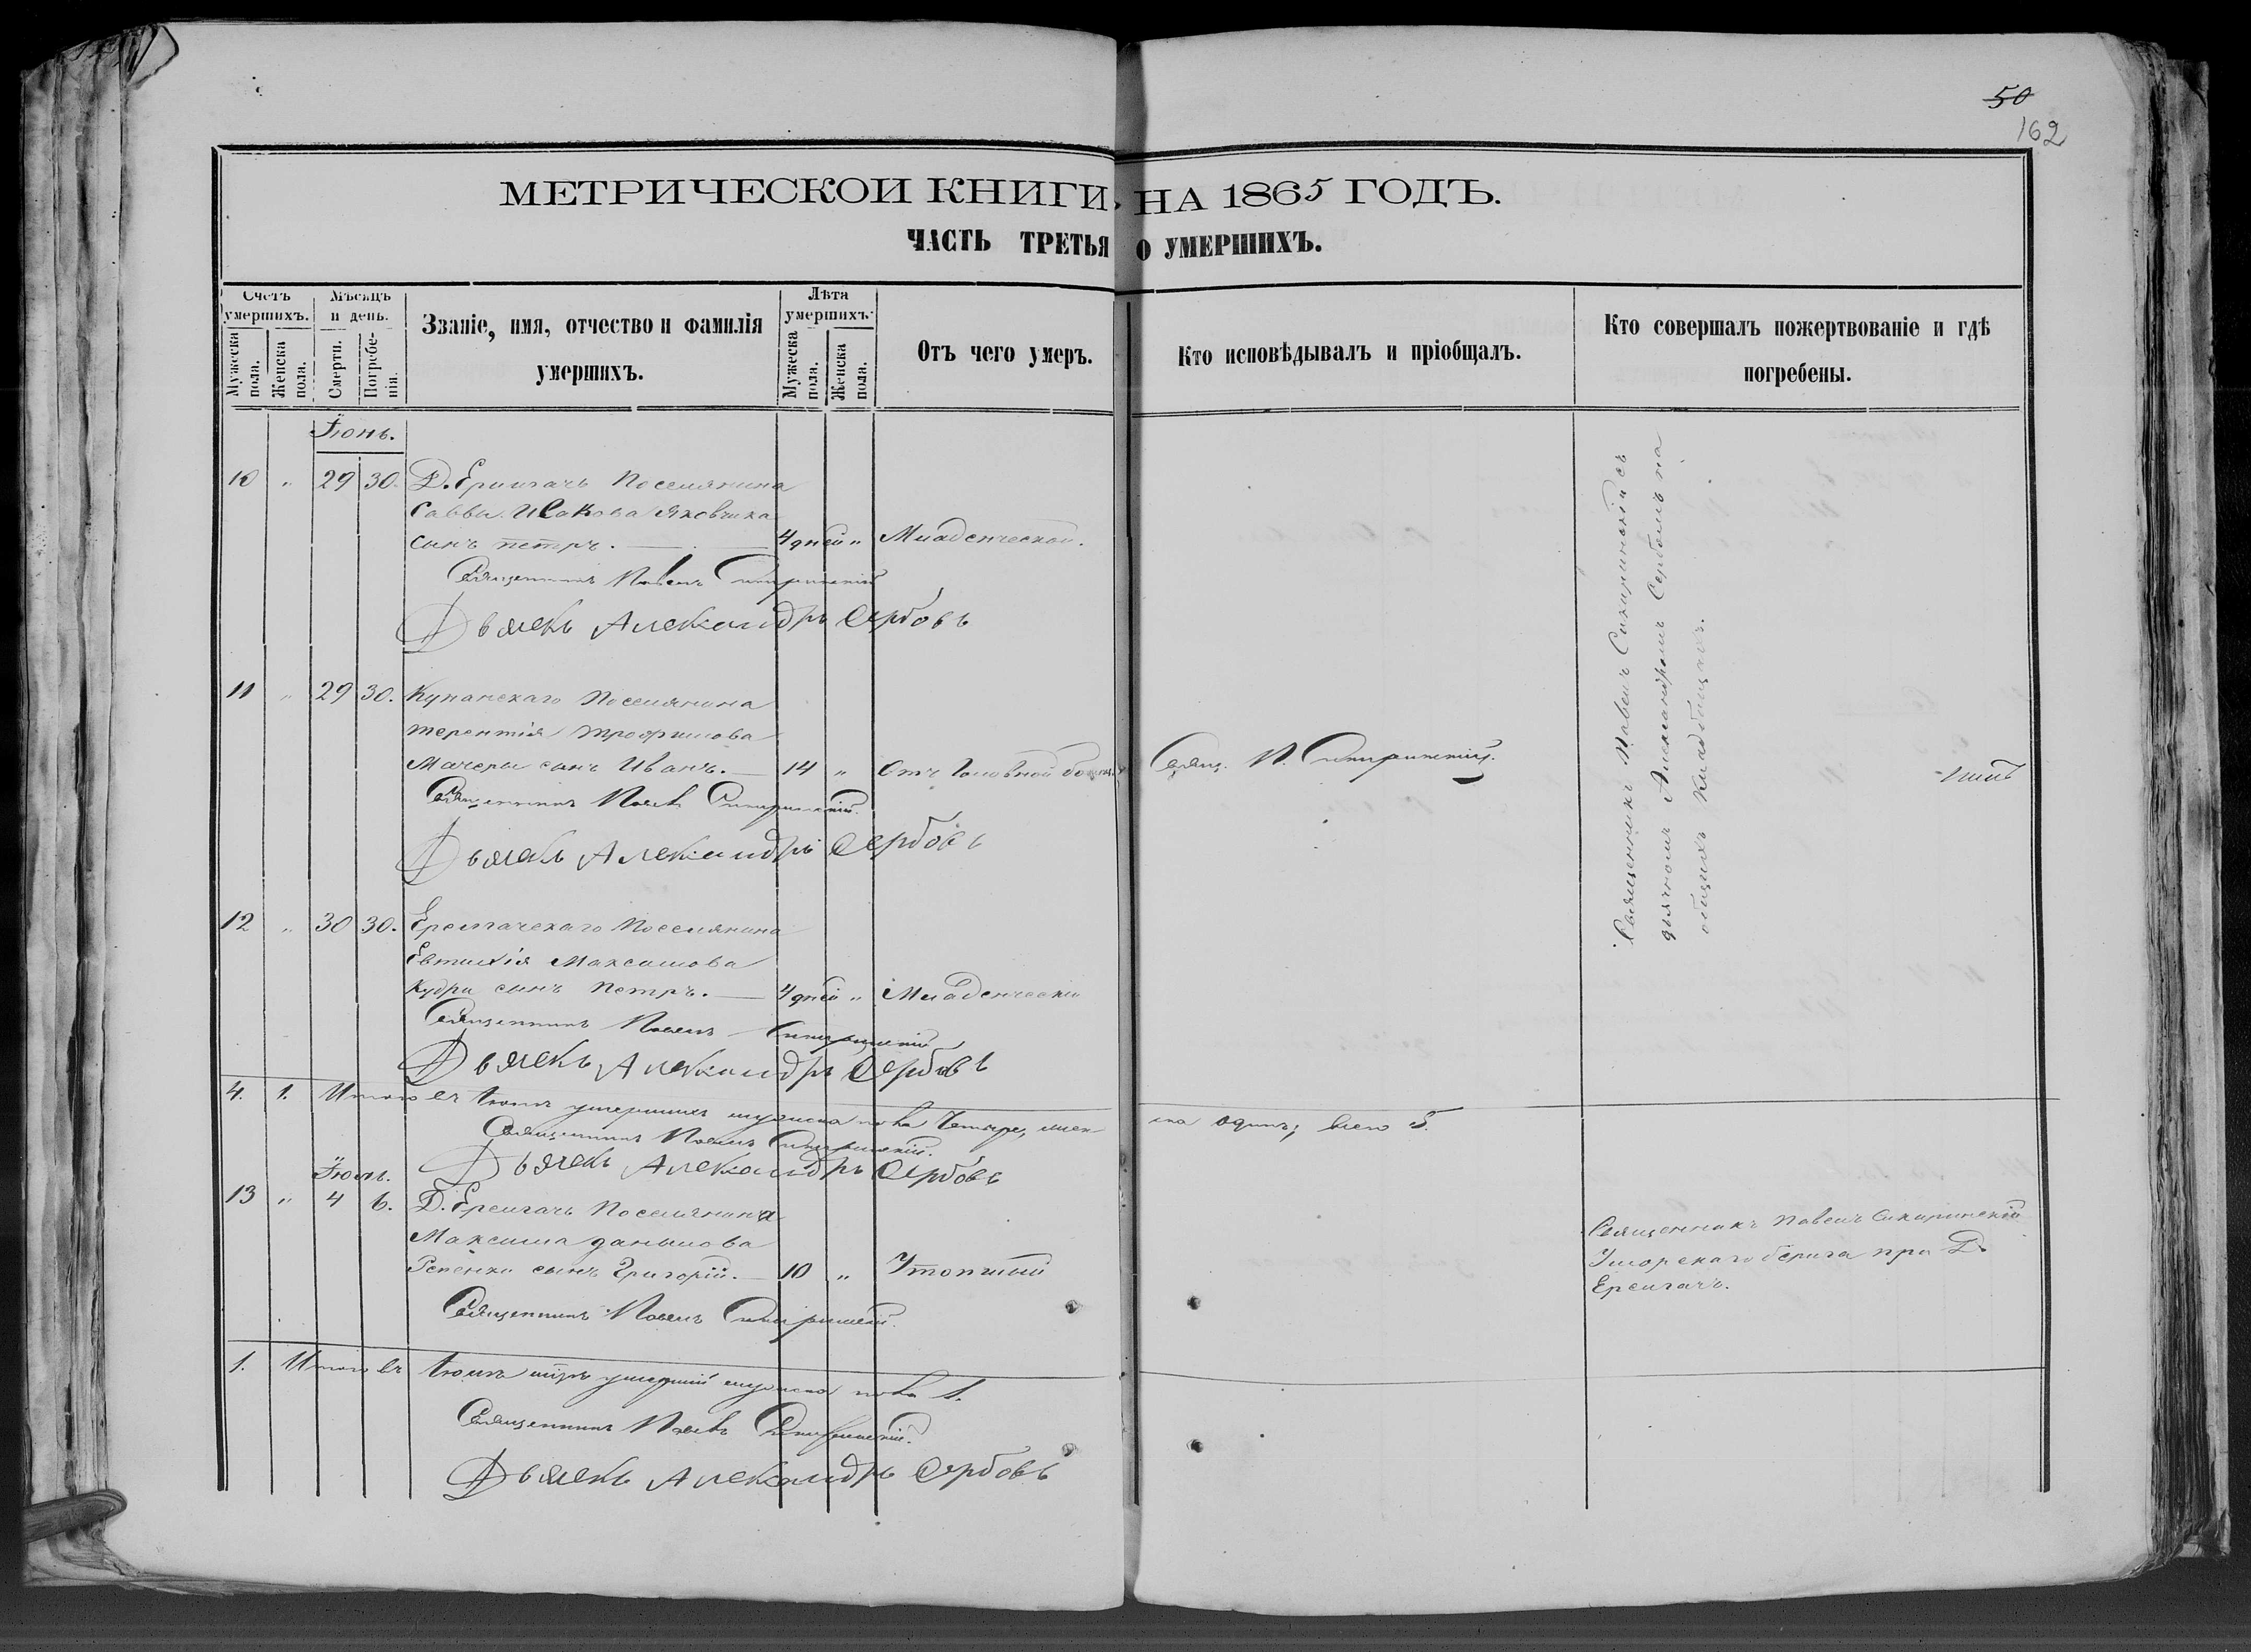 50
162
МЕТРИЧЕСКОЙ КНИГИ, НА 1865 ГОДЪ.
ЧАСТЬ ТРЕТЬЯ О УМЕРШИХЪ.
Счетъ умершихъ.
Мужеска пола.
Женска пола.
Мѣсяцъ и день.
Смерти.
Погребенія.
Званіе, имя, отчество и фамилія
умершихъ.
Лѣта умершихъ.
Мужеска пола.
Женска пола.
Отъ чего умеръ.
Кто исповѣдывалъ и пріобщалъ.
Кто совершалъ пожертвованіе и гдѣ
погребены.
Іюнь.
10 „ 29 30. Д. Поселянина
Саввы Исакова Яковчика
сынъ петръ. — 4 дней „ Младенческой.
Священникъ Павелъ
Дьячекъ Александръ Сербовъ
11 „ 29 30. Купанскаго Поселянина
терентія трофимова
Мачеры сынъ Иванъ. — 14 „ Отъ Головной Свящ. П.
Священникъ
Дьячекъ Александръ Сербовъ
Священникъ Павелъ Сикиринскій съ
дьячкомъ Александромъ Сербовымъ на
общихъ Кладбищахъ.
12 „ 30 30. Поселянина
Евтихія Максимова
Кудри сынъ Петръ. — 4 дней „ Младенческой
Священникъ Павелъ
Дьячекъ Александръ Сербовъ
4. 1. Итого въ Іюнѣ умершихъ мужеска пола Четыре, жен-
ска одинъ; всего 5.
Священникъ Павелъ
Дьячекъ Александръ Сербовъ
Іюль.
13 „ 4 6. Д. Поселянина
Максима данилова
Репенки сынъ Григорій. — 10 „ Утопшій
Священникъ Павелъ Сикиринскій
берега при Д.
Священникъ Павелъ
1. Итого въ Іюлѣ умершій мужеска пола 1.
Священникъ
Дьячекъ Александръ Сербовъ